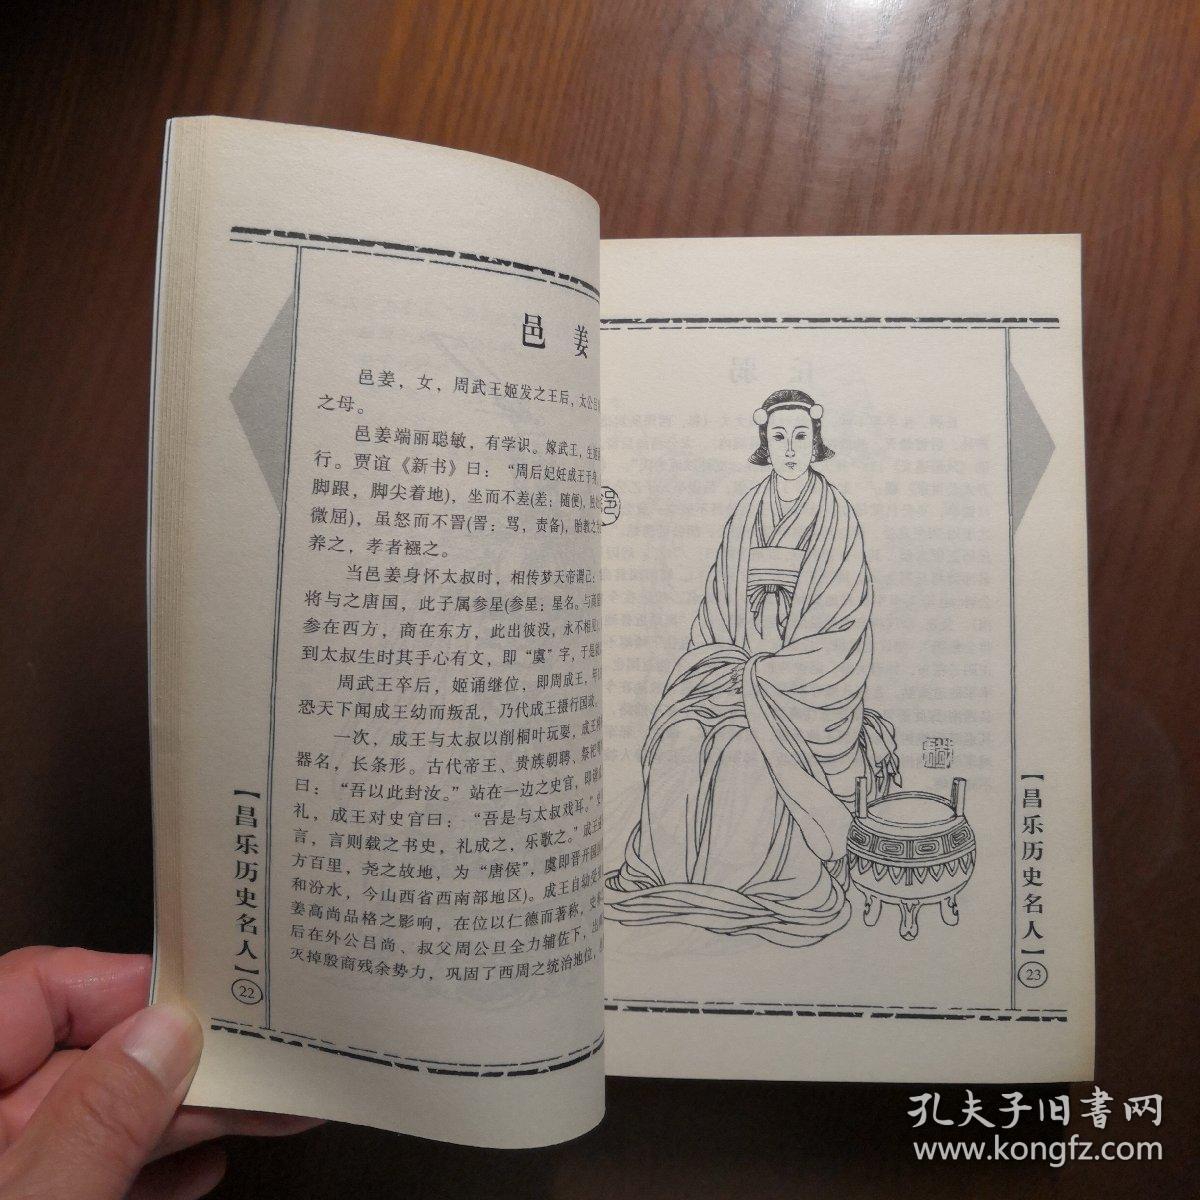 邑 姜
邑姜，女，周武王姬发之王后，太公吕
之母。
邑姜端丽聪敏，有学识。嫁武王，生
行。贾谊《新书》曰：“周后妃妊成王于身，
脚跟，脚尖着地)，坐而不差(差：随便)，
微屈)，虽怒而不詈(詈：骂，责备)，胎教之
养之，孝者襁之。
当邑姜身怀太叔时，相传梦天帝谓己：
将与之唐国，此子属参星(参星：星名。与商
参在西方，商在东方，此出彼没，永不相见
到太叔生时其手心有文，即“虞”字，于是
周武王卒后，姬诵继位，即周成王，年
恐天下闻成王幼而叛乱，乃代成王摄行国政，
一次，成王与太叔以削桐叶玩耍，成王
器名，长条形。古代帝王、贵族朝聘、祭祀
曰：“吾以此封汝。”站在一边之史官，即
礼，成王对史官曰：“吾是与太叔戏耳。”
言，言则载之书史，礼成之，乐歌之。”成王
方百里，尧之故地，为“唐侯”，虞即晋开国
和汾水，今山西省西南部地区)。成王自幼受
姜高尚品格之影响，在位以仁德而著称，史
后在外公吕尚、叔父周公旦全力辅佐下，
灭掉殷商残余势力，巩固了西周之统治地位，
【昌乐历史名人】
22
【昌乐历史名人】
23
孔夫子旧书网
www.kongfz.com